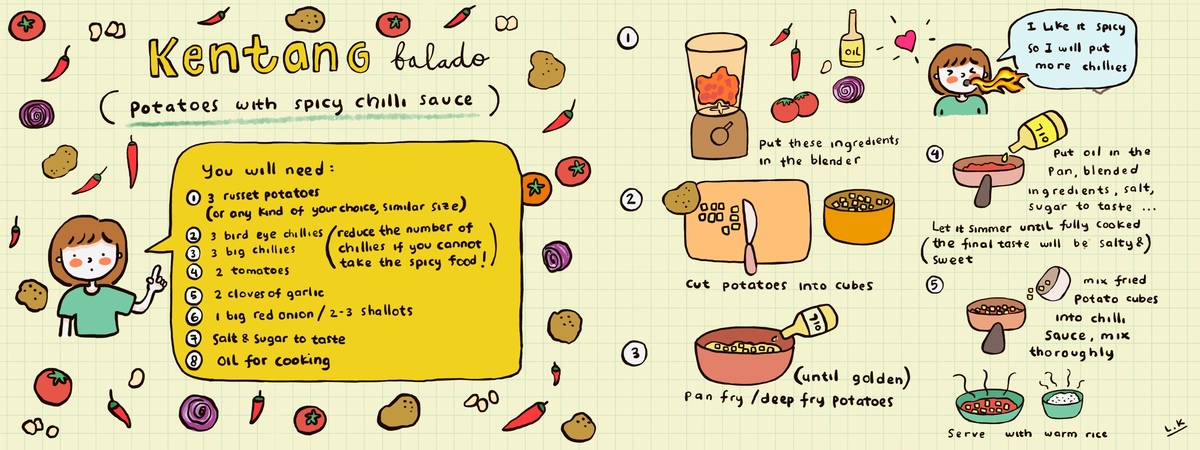 Kentang balado
(potatoes with spicy chilli sauce)
You will need:
1 3 russet potatoes
(or any kind of your choice, similar size)
2 3 bird eye chillies
3 3 big chillies
(reduce the number of
chillies if you cannot
take the spicy food!)
4 2 tomatoes
5 2 cloves of garlic
6 1 big red onion / 2-3 shallots
7 Salt & Sugar to taste
8 Oil for cooking
1
OIL
Put these ingredients
in the blender
2
Cut potatoes into cubes
3
OIL
(until golden)
Pan fry / deep fry potatoes
I like it spicy
so I will put
more chillies
4
OIL
Put oil in the
Pan, blended
ingredients, salt,
sugar to taste ...
Let it simmer until fully cooked
(the final taste will be salty &
sweet)
5
mix fried
Potato cubes
into chilli
Sauce, mix
thoroughly
Serve with warm rice
L.K